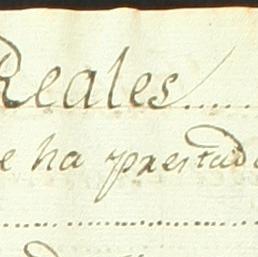 Reales.....
e ha prestado